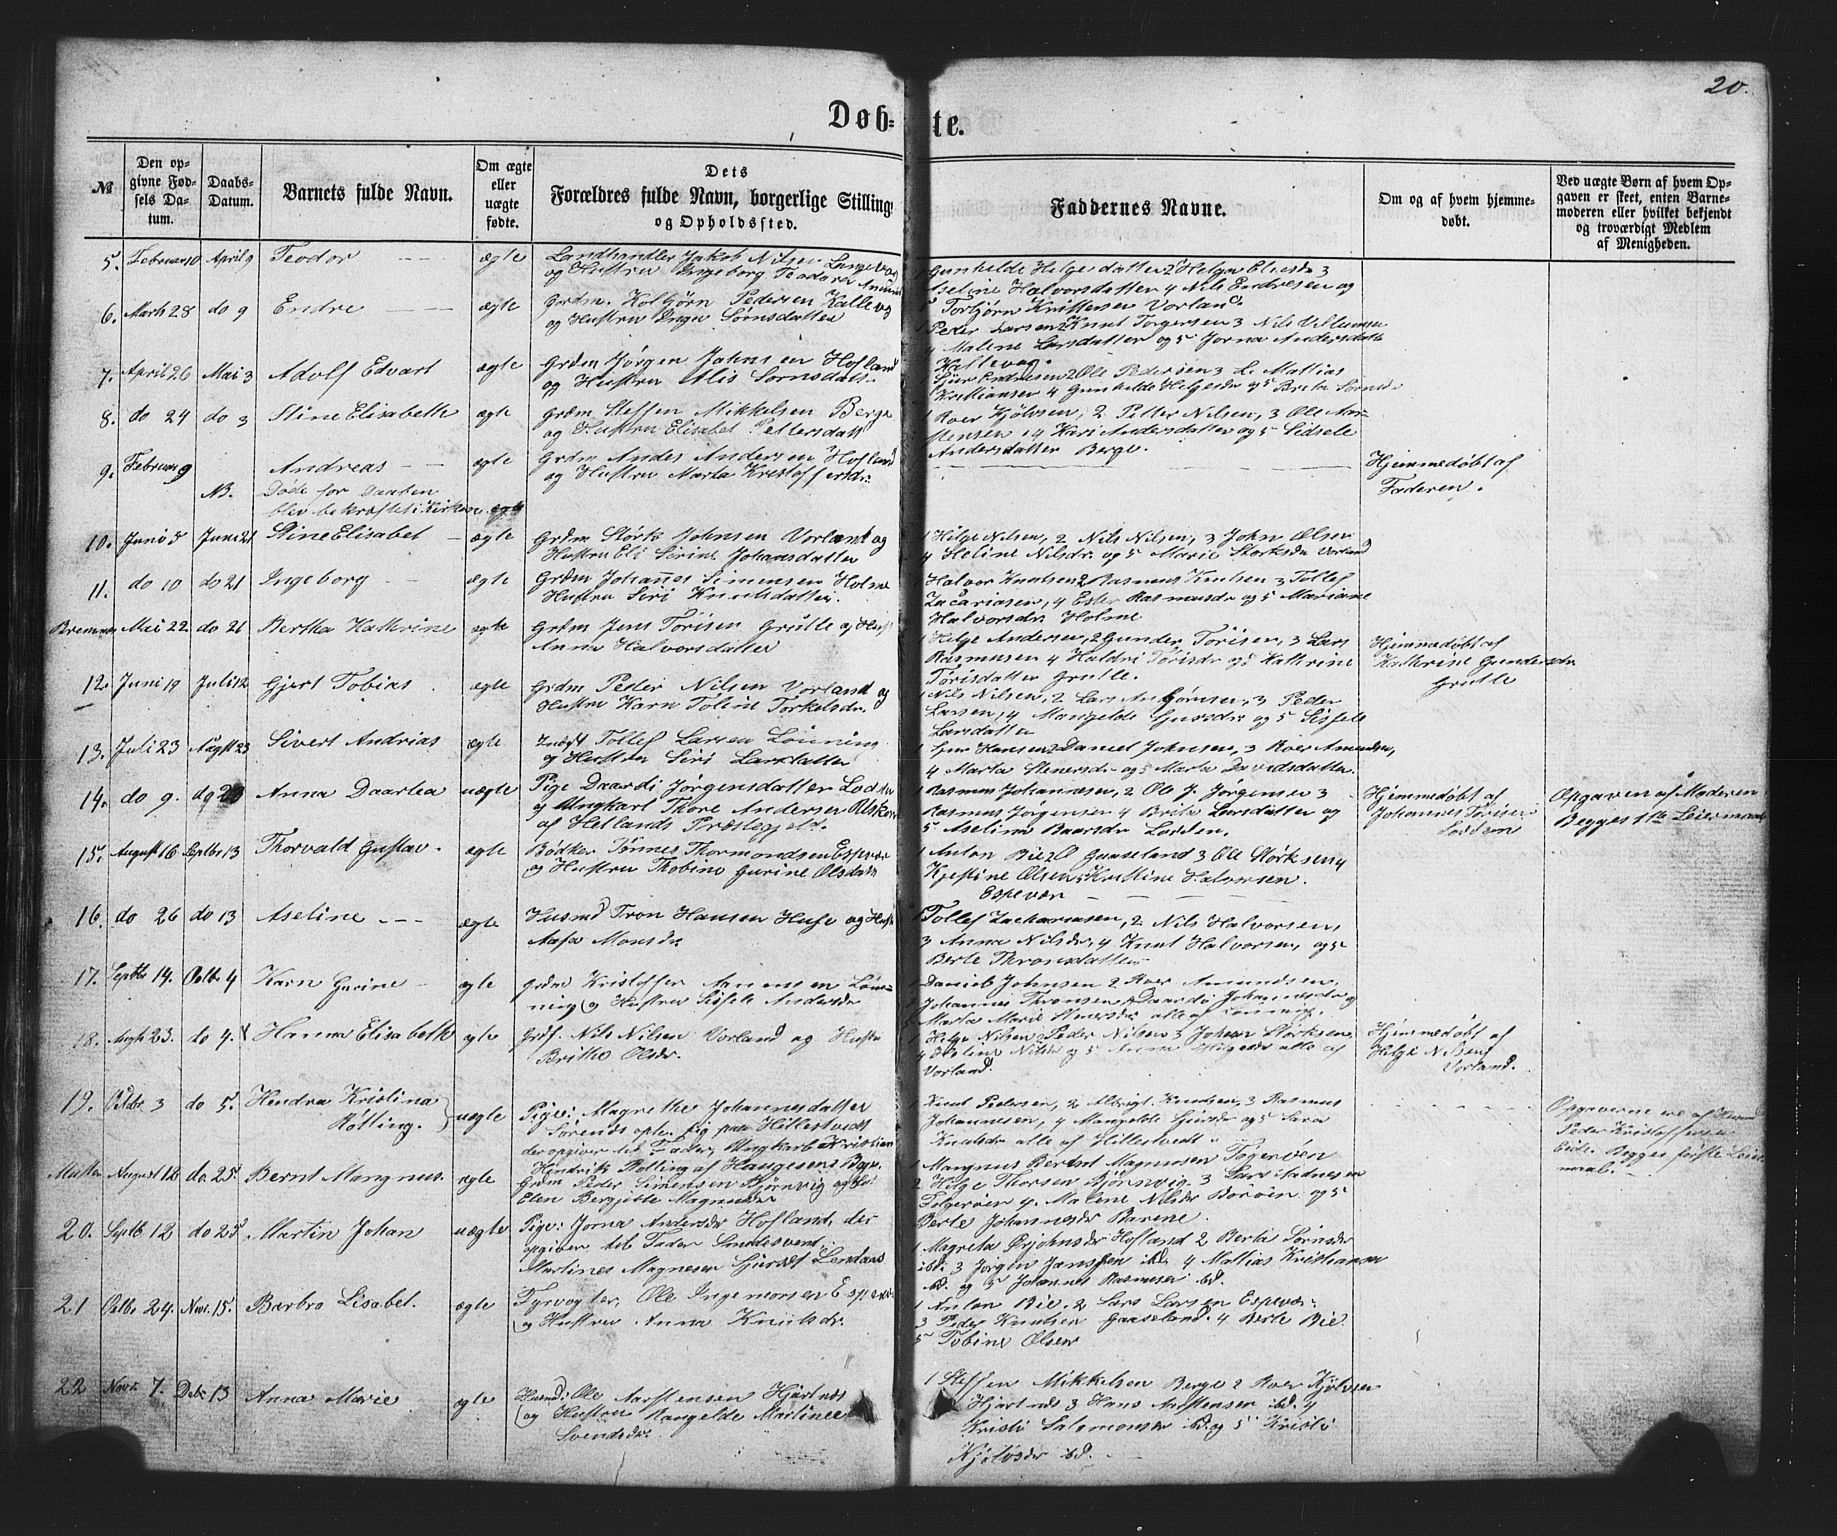 20.
Døb-te.
№
Den opgivne Fødsels Datum.
Daabs-Datum.
Barnets fulde Navn.
Om ægte eller uægte fødte.
Dets Forældres fulde Navn, borgerlige Stilling og Opholdssted.
Faddernes Navne.
Om og af hvem hjemmedøbt.
Ved uægte Børn af hvem Opgaven er skeet, enten Barnemoderen eller hvilket bekjendt og troværdigt Medlem af Menigheden.
5. Februar 10 April 9 Teodor ægte Landhandler Jakob Nilsen
og Hustru Ingeborg Teodora
Gunhilde Helgedatter 2 Helga 3
Aseline Halvorsdatter 4 Nils Endresen og
5 Torbjørn Kristensen Vorland.
6. Marts 28 do 9 Endre ægte Grdm. Kolbjørn Pedersen Kallevag
og Hustru Inga Sørnsdatter
Peder Larsen 2 Knut Torgersen 3 Nils Villumsen
4 Malene Larsdatter og 5 Jorna Andersdatter
Kallevag.
7. April 26 Mai 3 Adolf Edvart ægte Grdm Jørgen Jahnsen Hofland
og Hustru Alis Sørnsdatr.
Sjur Endresen 2 Ole Pedersen 3 L. Mattias
Kristiansen 4 Gunhilde Helgesdr og 5 Berte Sørnsdr
8. do 24 do 3 Stine Elisabeth ægte Grdm Steffen Mikkelsen Berge
og Hustru Elisabet Pettersdatt
1 Roer Kjølvsen, 2 Petter Nilsen, 3 Ole
4 Kari Andersdatter og 5 Sidsele
Andersdatter Berge.
9. Februar 9 NB. Andreas ægte Grdm Andes Andersen Hofland
og Hustru Marta Kristoffersdr.
Døde før Daaben
blev bekræftet i Kirken ægte
Hjemmedøbt af
Faderen.
10. Juni 5 Juni 21 Stine Elisabet ægte Grdm Størk Johnsen Vorland og
Hustru Eli Serine Johansdatter
1 Helge Nilsen, 2 Nils Nilsen, 3 John Olsen
4 Heline Nilsdr og 5 Marie Størksdr Vorland
11. do 10 do 21 Ingeborg ægte Grdm Johannes Simensen Holme
Hustru Siri Knutsdatter.
Halvor Knutsen 2 Rasmus Knutsen 3 Tollef
Zacariasen, 4 Ester Rasmusdr og 5 Mariane
Halvorsdr Holme
Bremnes Mai 22. do 21 Bertha Kathrine ægte Grdm Jens Torisen Grutle og Hust
Anna Halvorsdatter
1 Helge Andersen, 2 Gunder Torisen, 3 Lars
Rasmusen 4 Haldri Torisdr og 5 Kathrine
Torisdatter Grutle.
Hjemmedøbt af
Kathrine Gundersdr
Grutle
12. Juni 19 Juli 12 Gjert Tobias ægte Grdm Peder Nilsen Vorland og
Hustru Karn Toline Torkelsdr.
1 Nils Nilsen, 2 Lars 3 Peder
Larsen, 4 og 5 Sissele
Larsdatter
13. Juli 23 Augst 23 Sivert Andrias ægte Tollef Larsen Lønning
og Hustru Siri Larsdatter
Hansen 2 Daniel Johnsen, 3 Roer Amundsen,
4 Marta Stenersdr og 5 Marta Davidsdatter.
14. do 9. do 23 Anna Daartea uægte Pige Daardi Jørgensdatter Lodden
og Ungkarl Thore Andersen
af Hetlands Præstegjeld.
1 Rasmus Johannesen, 2 Ole J. Jørgensen 3
Rasmus Jørgensen 4 Brita Larsdatter og
5 Aselina Baarsdr Lodden.
Hjemmedøbt af
Johannes Torisen
Lodden
Opgaven af Moderen
Begges 1ste Leiermaal
15. August 16 Septbr 13 Thorvald Gustav. ægte Bødker Tønnes Thormondsen Espevær
og Hustru Thobine Gurine Olsdatt
1 Anton Bie 2 Gaaseland 3 Ole Størksen 4
Kjestine Olsen, 5 Kristine Halvorsen.
Espevær
16. do 26 do 13 Aseline ægte Husmd Tron Hansen Huse og Hust
Aasa Monsdr.
1 Tollef Zachariasen, 2 Nils Halvorsen,
3 Anna Nilsdr, 4 Knut Halvorsen, og 5
Berte Thronsdatter
17. Septbr 14. Octbr 4 Karn Gurine ægte Grdm Kristoffer Lønning
og Hustru Sissele Andersdr
Daniel Johnsen 2 Roer Amundsen,
Johannes Thronsen Daardi Johannesdr og
Marta Marie Stenersdr alle af Lønning.
18. Augst 23. do 4. Hanna Elisabeth ægte Grdf. Nils Nilsen Vorland og Hustr
Britha Olsdr.
1 Helge Nilsen 2 Peder Nilsen 3 Johan Størksen,
4 Heline Nilsdr og 5 Anna Helgesdr alle af
Vorland.
Hjemmedøbt af
Helge Nilsen
Vorland.
19. Octbr 3 do 5. Hendra Kristina
Rølling. uægte Pige: Magrethe Johannesdatter
Hillestvedt
der opgiver til Fader, Ungkarl Kristian
Hendrik Rølling af Haugesens By.
1 Knut Pedersen, 2 Aldrigt Knutsen, 3 Rasmus
Johannesen, 4 Mangelde Sjursdr og 5 Sara
Knutsdr alle af Hillestvedt.
Opgaverne ere af
Peder Kristoffersen
Eide. Begges første Leier-
maal.
August 12 do. 25. Bernt Mangnus. ægte Grdm Peder Simensen Bjørnvig og
Elen Bergitte Magnusdr
1 Mangnus Berent Magnusen Fogerøen
2 Helge Thorsen Bjørnvig. 3 Lars
Folgerøen 4. Malene Nilsdr og 5
Berte Johannesdr
20. Septb. 12 do 25 Martin Johan uægte Pige: Jorna Andersdr Hofland, der
opgiver til Fader
Martines Magnesen
1 Magreta Ørjohnsdr Hofland 2 Berte Sørnsdr
ibd. 3 Jørgen Janssen ibd. 4 Mattias Kristiansen
ibd. og 5 Johannes Rasmusen ibd.
21 Octbr. 24. Novr. 15. Barbro Lisabet. ægte Fyrvogter, Ole Ingemorsen Espevær
og Hustru Anna Knutsdr.
1 Anton Bie. 2 Lars Larsen Espevær.
3 Peder Knutsen Gaaseland. 4 Berte Bie
5 Tobine Olsen
22 Novr. 7. Debr 13 Anna Marie ægte Husmd: Ole Aasttensen Hjartnes
og Hustru Rangelde Martinee
Svendsdr.
1 Steffen Mikkelsen Berge 2 Roer Kjølvsen
Hjartnes 3 Hans ibd. 4
Kristi Salomonsen ibd. og 5 Kristi
Kjølvsdr ibd.